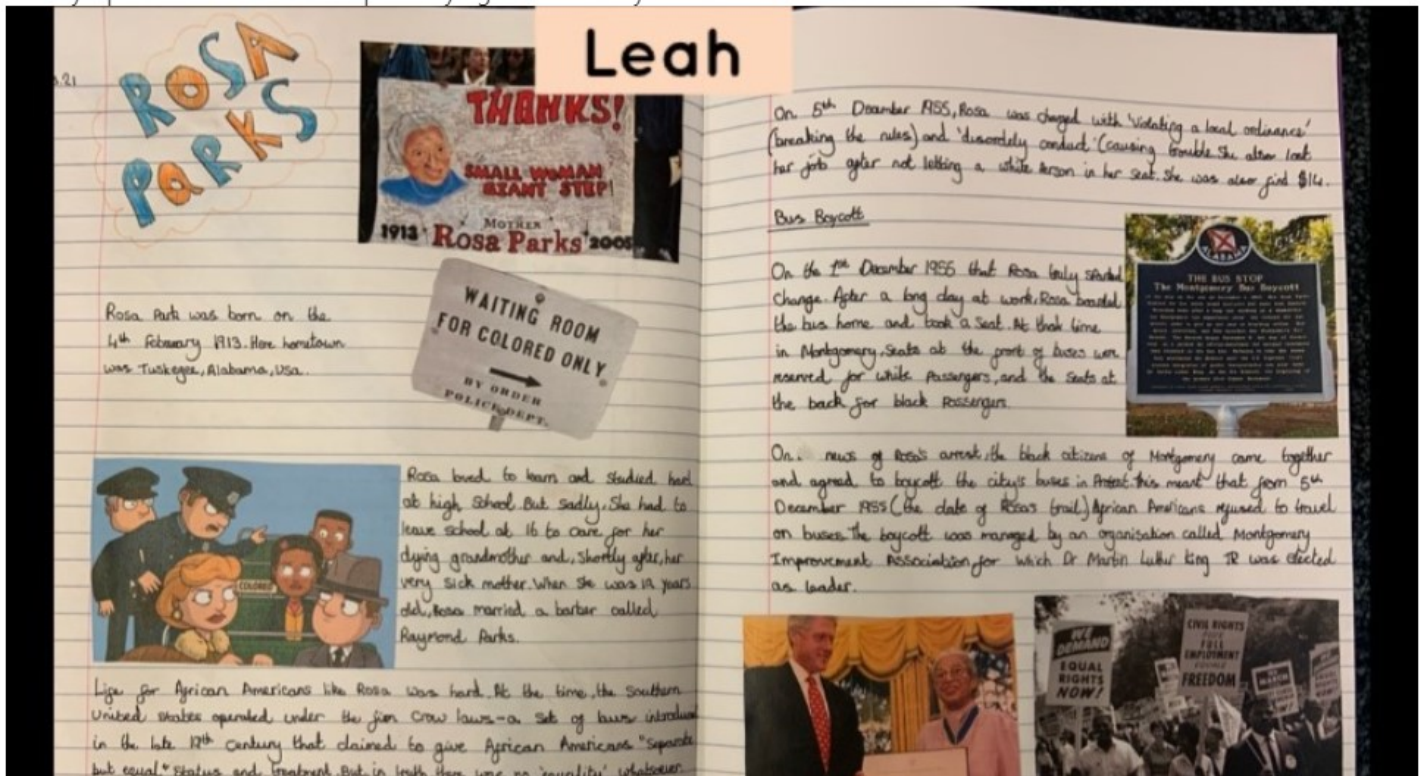 Leah
3.21
ROSA
PARKS
THANKS!
SMALL WOMAN
GIANT STEP!
MOTHER
1913 Rosa Parks 2005
WAITING ROOM
FOR COLORED ONLY
BY ORDER
POLICE DEPT.
Rosa Park was born on the
4th February 1913. Here hometown
was Tuskegee, Alabama, Usa.
COLORED
Rosa loved to learn and studied hard
at high School. But sadly, She had to
leave school at 16 to care for her
dying grandmother and, Shortly after, her
very sick mother. When She was 19 years
old, Rosa married a barber called
Raymond Parks.
Life for African Americans like Rosa was hard. At the time, the Southern
United States operated under the Jim Crow laws - a set of laws introduced
in the late 19th Century that claimed to give African Americans "Separate
but equal" Status and treatment. But in truth there was no 'equality' whatsoever.
On 5th December 1955, Rosa was charged with 'violating a local ordinance'
(breaking the rules) and 'disordely conduct' (causing trouble. She alsow lost
her job after not letting a white Person in her seat. She was alsow find $14.
Bus Boycott
On the 1st December 1955 that Rosa truly Started
Change. After a long day at work, Rosa boarded
the bus home and took a Seat. At that time
in Montgomery, Seats at the front of buses were
reserved for white Passengers, and the Seats at
the back for black Passengers.
ALABAMA
THE BUS STOP
The Montgomery Bus Boycott
On news of Rosa's arrest, the black citizens of Montgomery came together
and agreed to boycott the city's buses in Protest. this meant that from 5th
December 1955 (the date of Rosa's trail) African Americans refused to travel
on buses. The boycott was managed by an organisation called Montgomery
Improvement Association for which Dr Martin Luther King JR was elected
as leader.
WE
DEMAND
EQUAL
RIGHTS
NOW!
CIVIL RIGHTS
FULL
EMPLOYMENT
FREEDOM